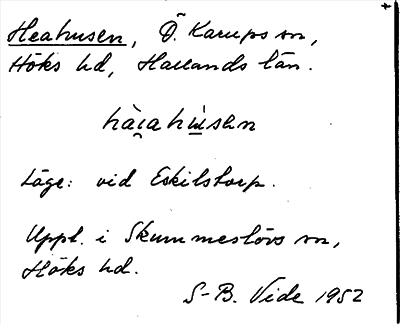 Heahusen, Ö. Karups sn,
Höks hd, Hallands län.
hàɪ̯ahùsɛn
Läge: vid Eskilstorp.
Uppt. i Skummeslövs sn,
Höks hd.
S-B. Vide 1952